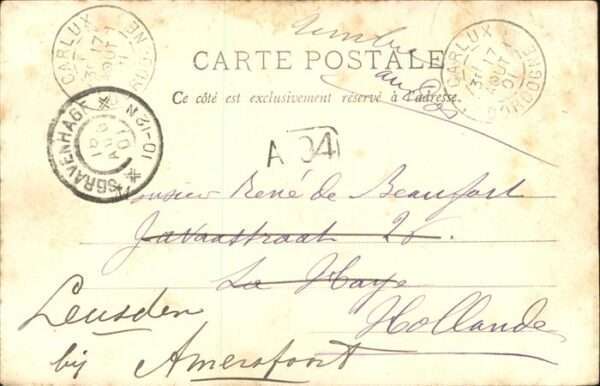 CARTE POSTALE
Ce côté est exclusivement réservé à l'adresse.
CARLUX
17
AOUT
01
DORDOGNE
CARLUX
17
AOUT
01
DORDOGNE
'SGRAVENHAGE
AUG
01
12-1N
A 04
Monsieur René de Beaufort
Javaastraat 26.
La Haye
Hollande
Leusden
bij Amersfoort